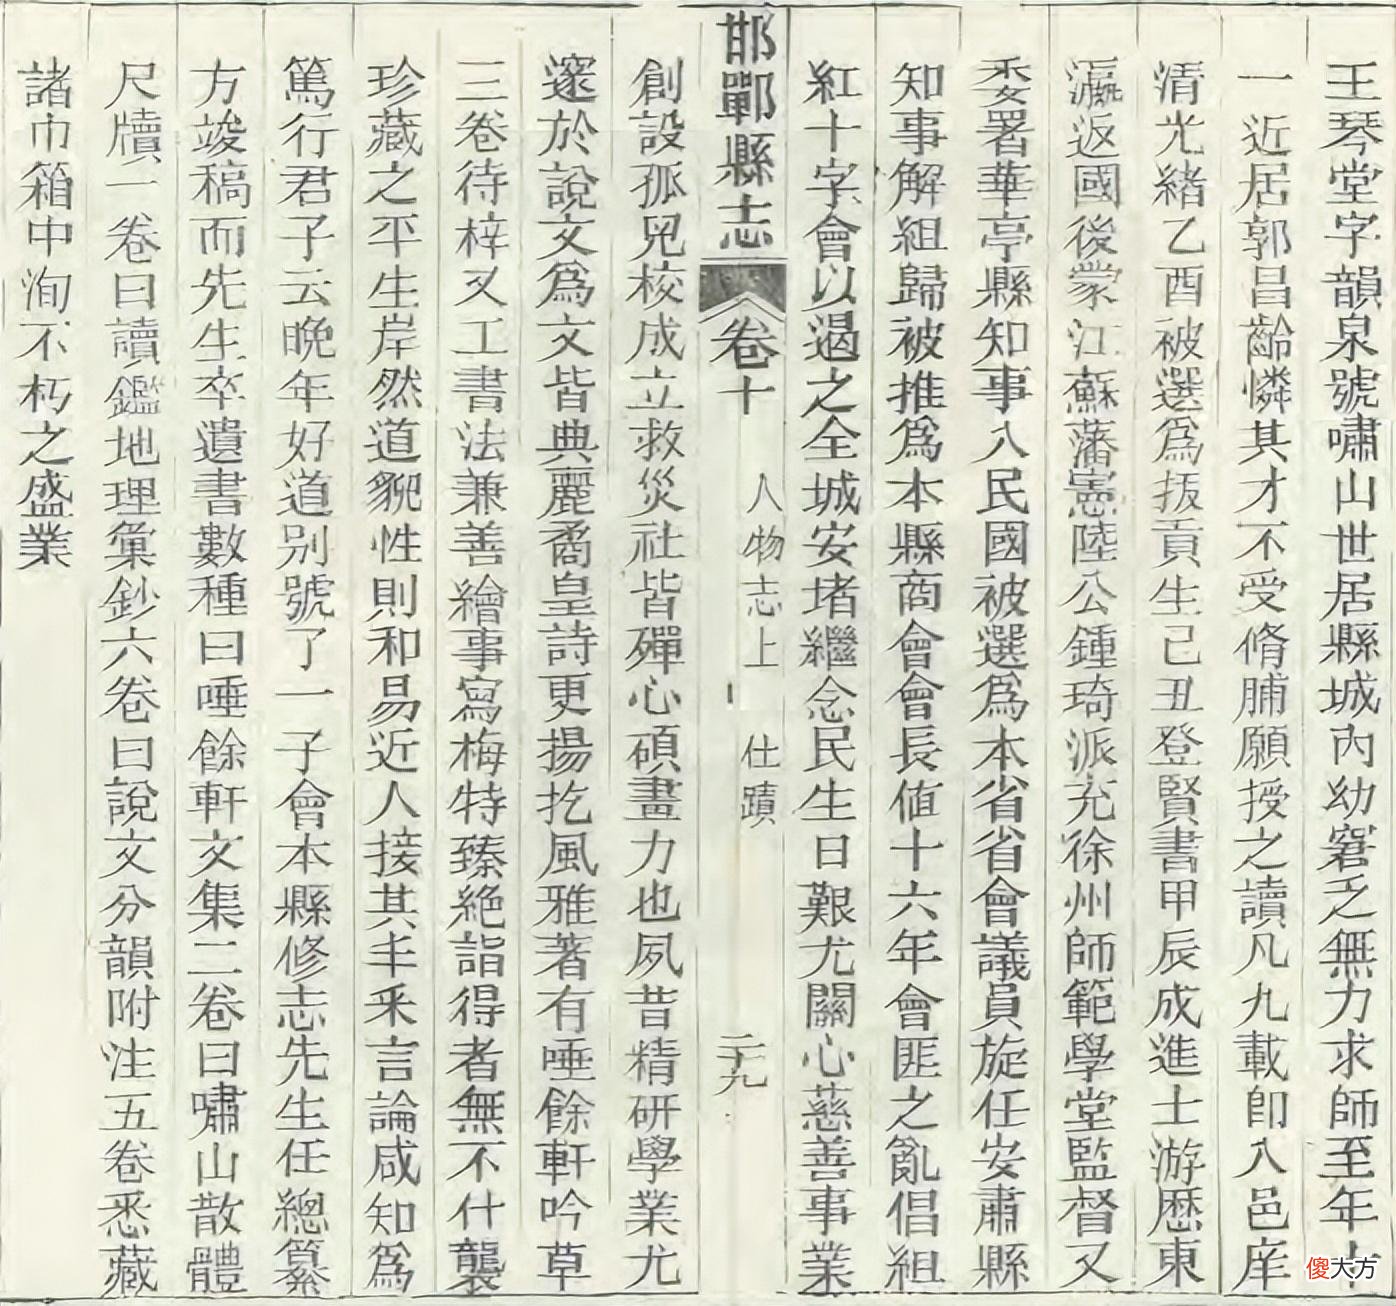 王琴堂字韻泉號嘯山世居縣城內幼窘乏無力求師至年十
一近居郭昌齡憐其才不受脩脯願授之讀凡九載卽入邑庠
清光緒乙酉被選爲拔貢生己丑登賢書甲辰成進士游歷東
瀛返國後蒙江蘇藩憲陸公鍾琦派充徐州師範學堂監督又
委署華亭縣知事入民國被選爲本省省會議員旋任安肅縣
知事解組歸被推爲本縣商會會長値十六年會匪之亂倡組
紅十字會以遏之全城安堵繼念民生日艱尤關心慈善事業
邯鄲縣志 卷十 人物志上 仕蹟 二十九
創設孤兒校成立救災社皆殫心碩畫力也夙昔精研學業尤
邃於說文爲文皆典麗矞皇詩更揚扢風雅著有唾餘軒吟草
三卷待梓又工書法兼善繪事寫梅特臻絕詣得者無不什襲
珍藏之平生岸然道貌性則和易近人接其丰采言論咸知爲
篤行君子云晚年好道別號了一子會本縣修志先生任總纂
方竣稿而先生卒遺書數種曰唾餘軒文集二卷曰嘯山散體
尺牘一卷曰讀鑑地理彙鈔六卷曰說文分韻附注五卷悉藏
諸巾箱中洵不朽之盛業
傻大方